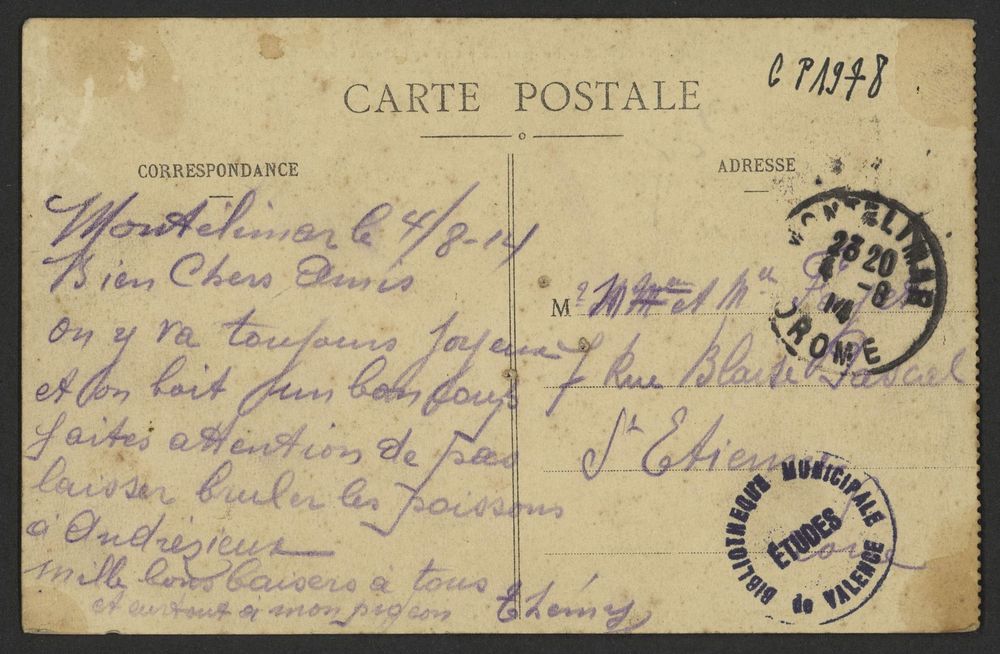 CP1978
CARTE POSTALE
CORRESPONDANCE
Montélimar le 4/8-14
Bien Chers Amis
on y va toujours joyeux
et on boit un bon coup
faites attention de pas
laisser bruler les poissons
à Andrézieux
Mille bons baisers à tous
et surtout a mon pigeon
ADRESSE
M. et Mlle
7 Rue Blaise Pascal
St Etienne
Loire
MONTELIMAR
23 20
4 -8
14
DROME
BIBLIOTHEQUE MUNICIPALE
ÉTUDES
de VALENCE